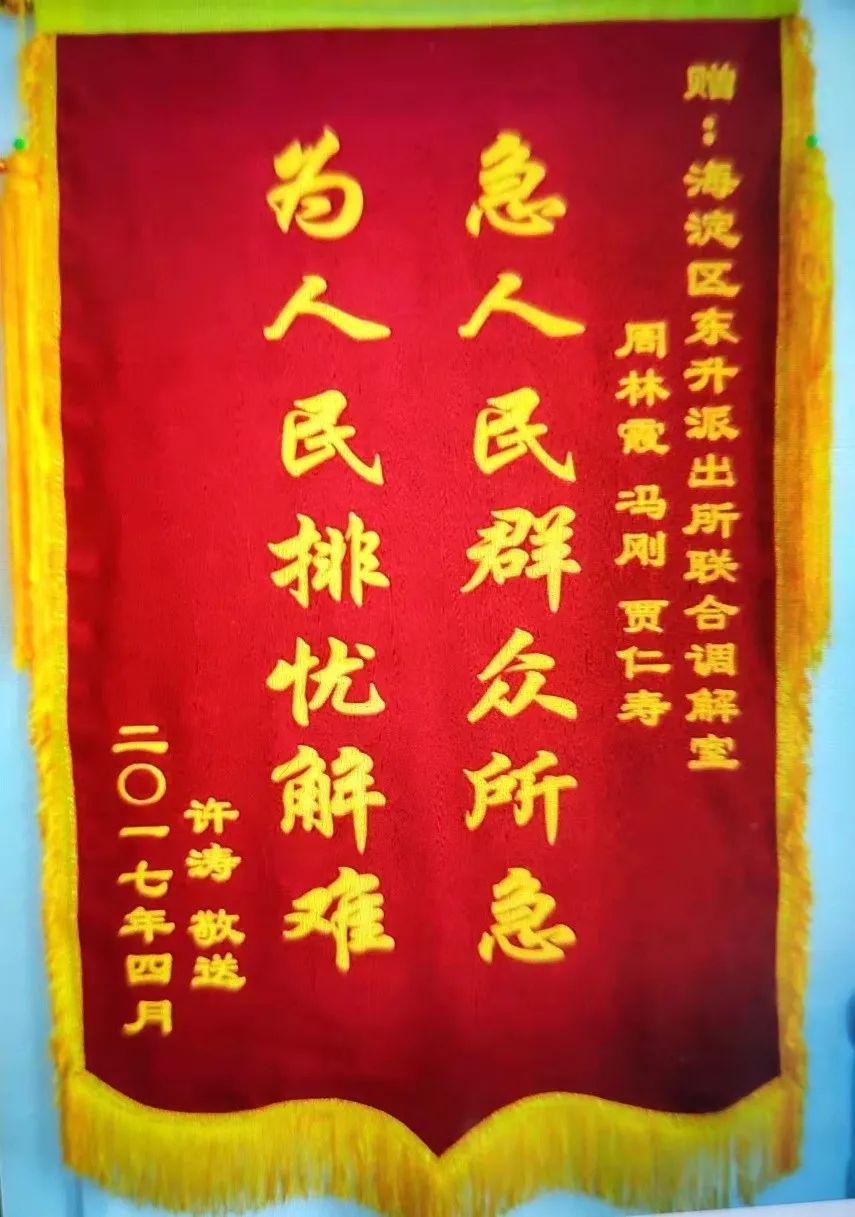 赠：海淀区东升派出所联合调解室
周林霞 冯刚 贾仁寿
急人民群众所急
为人民排忧解难
许涛 敬送
二〇一七年四月